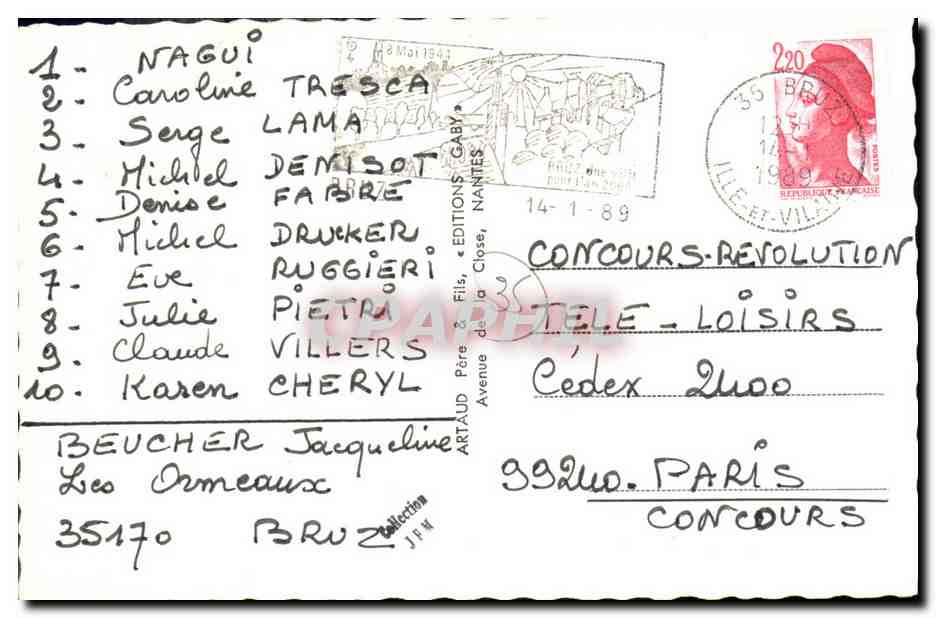 1 - NAGUI
2 - Caroline TRESCA
3 - Serge LAMA
4 - Michel DENISOT
5 - Denise FABRE
6 - Michel DRUCKER
7 - Eve RUGGIERI
8 - Julie PIETRI
9 - Claude VILLERS
10 - Karen CHERYL
BEUCHER Jacqueline
Les Ormeaux
35170 BRUZ
Collection
J F M
ARTAUD Père & Fils, « EDITIONS GABY »
Avenue de la Close, NANTES
8 Mai 1944
BRUZ
BRUZ une ville
pour l'an 2000
14-1-89
2,20
POSTES
REPUBLIQUE FRANÇAISE
35 BRUZ
1989
ILLE-ET-VILAINE
35
CPAPHIL
CONCOURS-REVOLUTION
TELE - LOISIRS
Cédex 2400
99240 - PARIS
CONCOURS